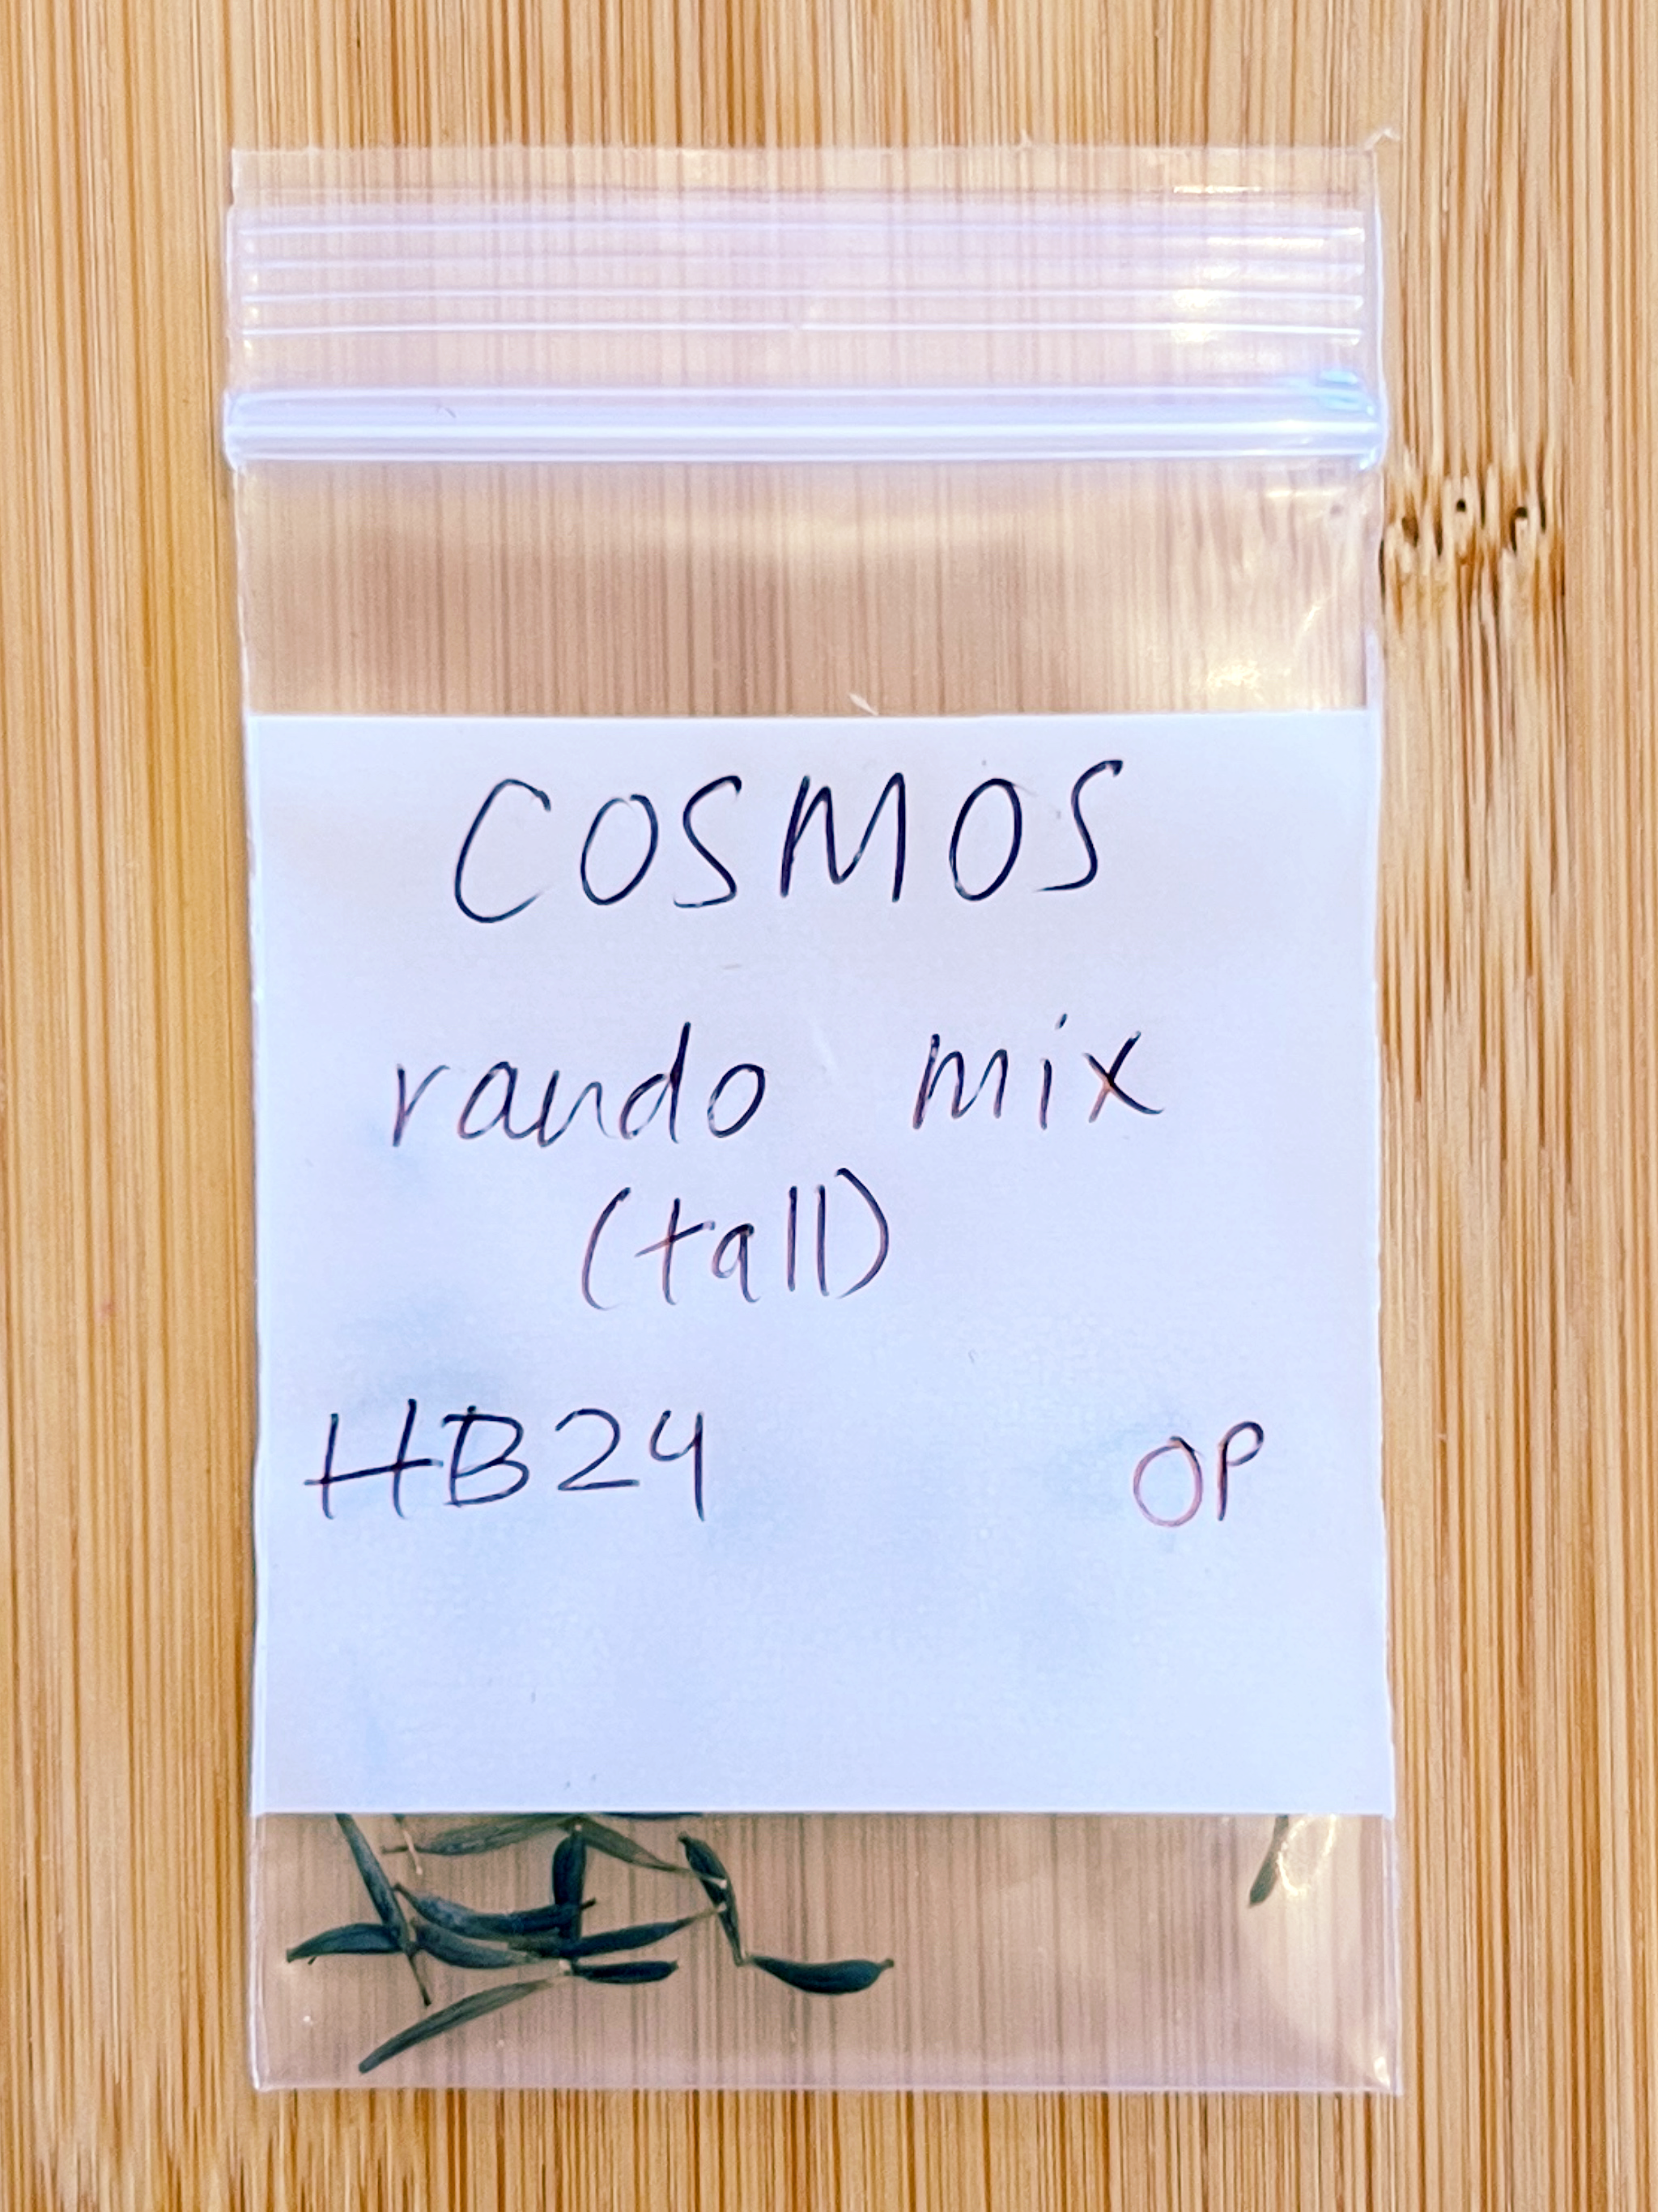 COSMOS
rando mix
(tall)
HB24 OP